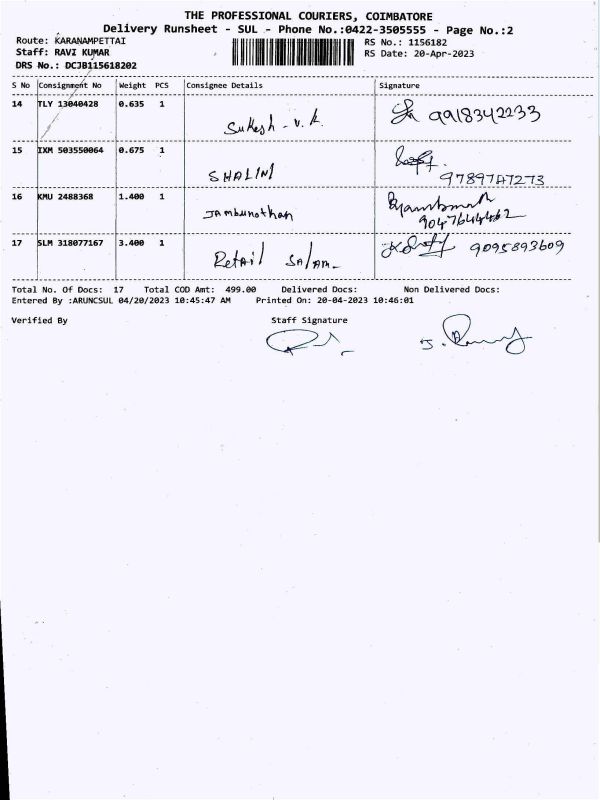 THE PROFESSIONAL COURIERS, COIMBATORE
Delivery Runsheet - SUL - Phone No.:0422-3505555 - Page No.:2
Route: KARANAMPETTAI RS No.: 1156182
Staff: RAVI KUMAR RS Date: 20-Apr-2023
DRS No.: DCJB115618202
S No Consignment No Weight PCS Consignee Details Signature
14 TLY 13040428 0.635 1 Sukesh - V. K. 9918342233
15 IXM 503550064 0.675 1 SHALINI 9789747273
16 KMU 2488368 1.400 1 JAmbunathan 9047644462
17 SLM 318077167 3.400 1 RetAil SAlAm- 9095893609
Total No. Of Docs: 17 Total COD Amt: 499.00 Delivered Docs: Non Delivered Docs:
Entered By :ARUNCSUL 04/20/2023 10:45:47 AM Printed On: 20-04-2023 10:46:01
Verified By Staff Signature